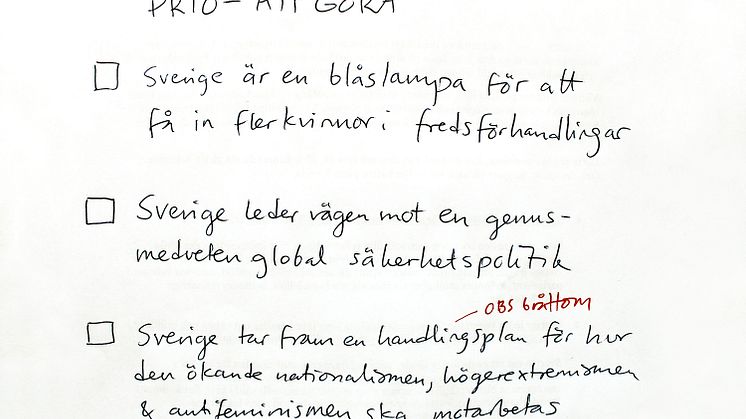 PRIO- ATT GÖRA
Sverige är en blåslampa för att
få in fler kvinnor i fredsförhandlingar
Sverige leder vägen mot en genus-
medveten global säkerhetspolitik
OBS bråttom
Sverige tar fram en handlingsplan för hur
den ökande nationalismen, högerextremismen
& antifeminismen ska motarbetas